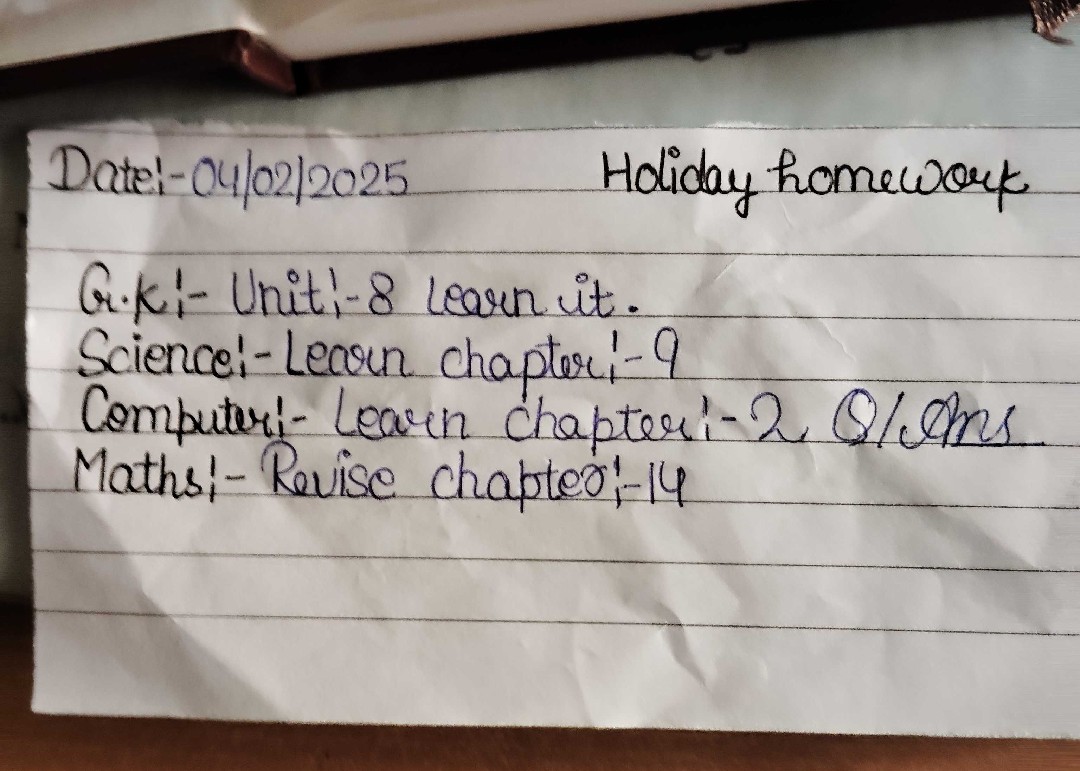 Date:-04/02/2025 Holiday homework
G.k:- Unit:-8 learn it.
Science:- Learn chapter:-9
Computer:- Learn chapter:-2 Q/Ans
Maths:- Revise chapter:-14